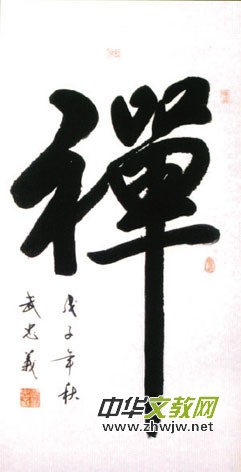 禪
戊子年秋
武忠義
中华文教网
www.zhwjw.net